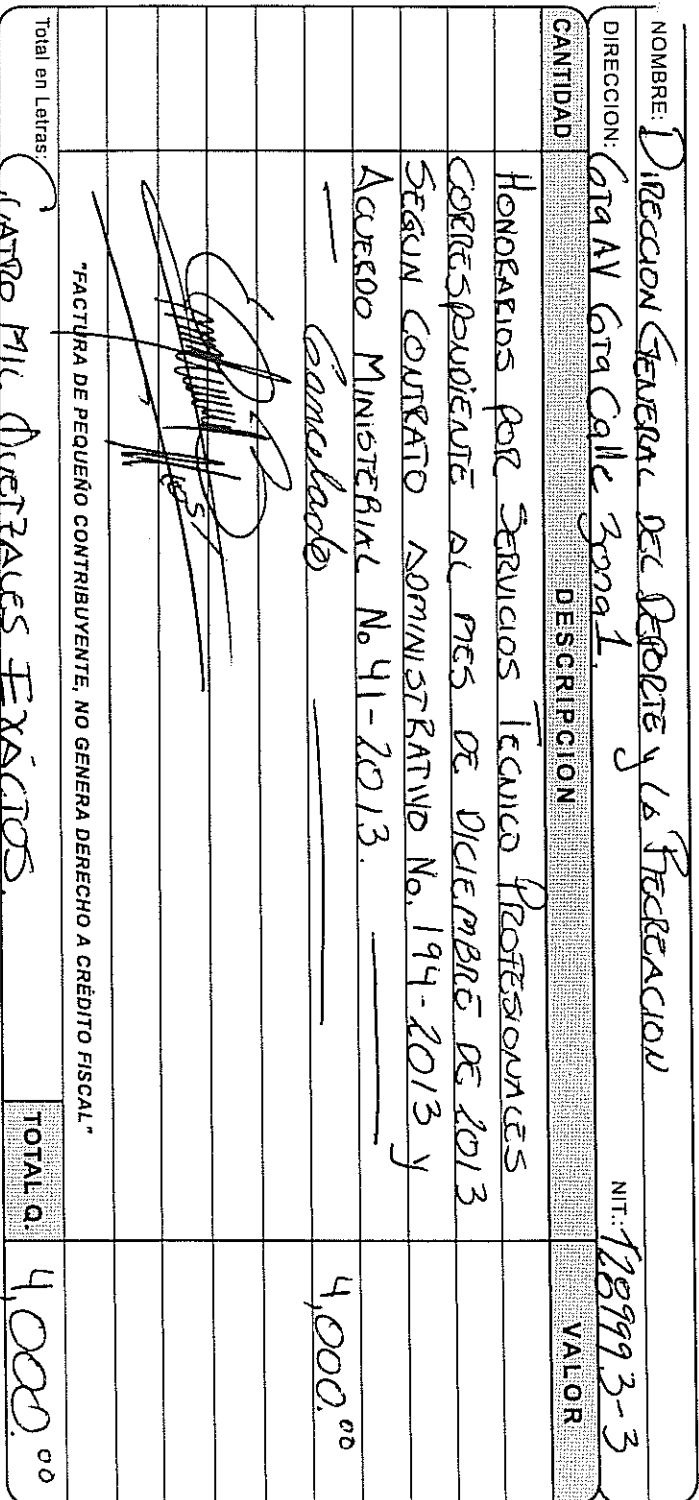 NOMBRE: DIRECCION GENERAL DEL DEPORTE y LA RECREACION
DIRECCION: 6ta AV 6ta Calle Zona 1. NIT.: 1789993-3
CANTIDAD DESCRIPCION VALOR
HONORARIOS POR SERVICIOS TECNICO PROFESIONALES
CORRESPONDIENTE AL MES DE DICIEMBRE DE 2013
SEGUN CONTRATO ADMINISTRATIVO No. 194-2013 y
ACUERDO MINISTERIAL No 41-2013.
Cancelado 4,000.00
"FACTURA DE PEQUEÑO CONTRIBUYENTE, NO GENERA DERECHO A CRÉDITO FISCAL"
Total en Letras: CUATRO MIL QUETZALES EXACTOS. TOTAL Q. 4,000.00